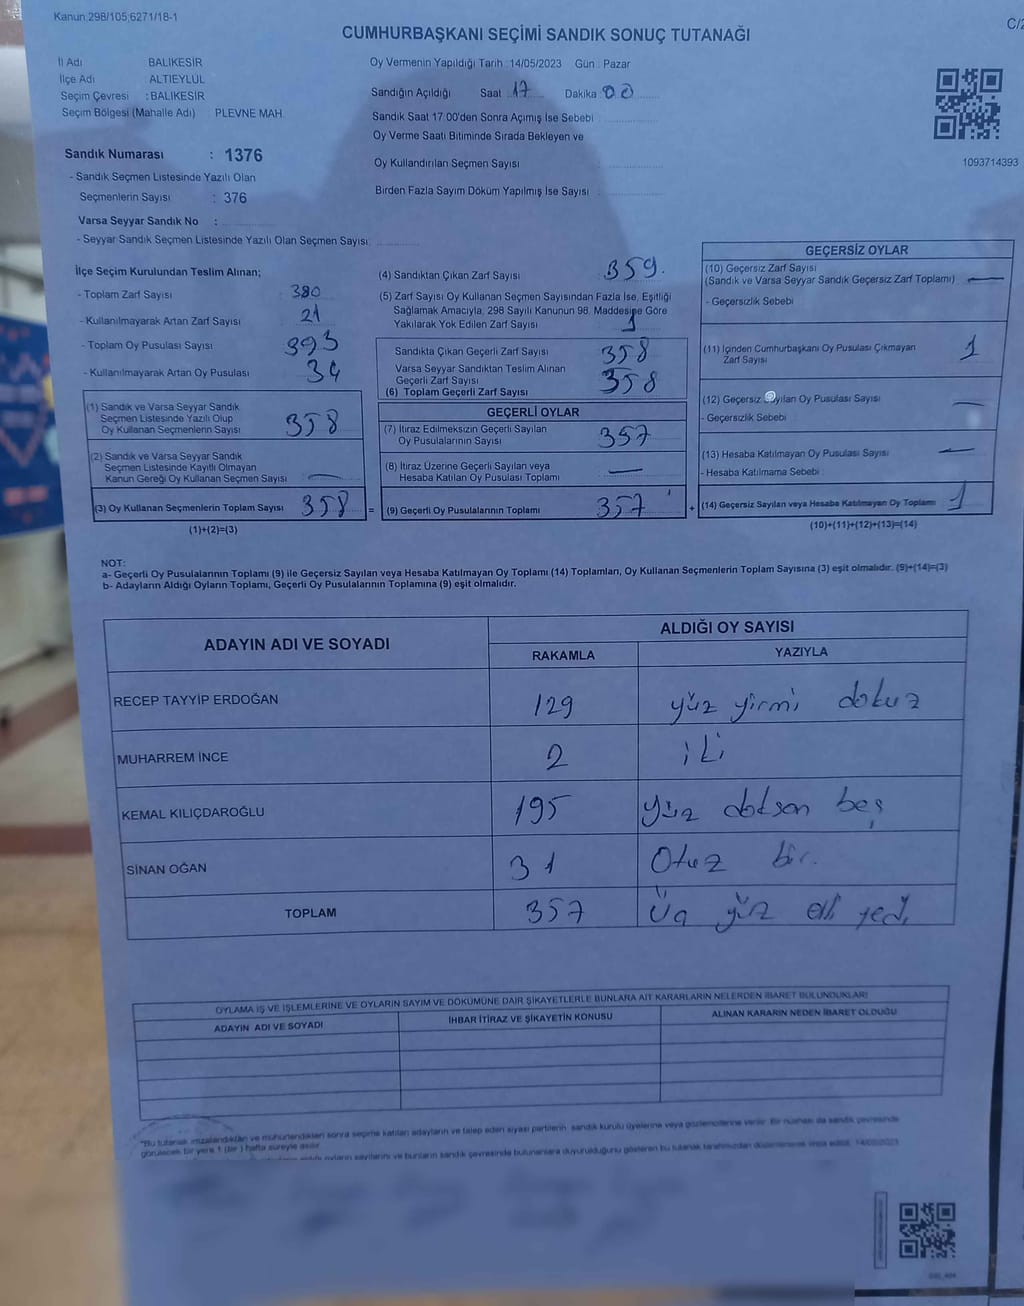 Kanun 298/105,6271/18-1
C/2
CUMHURBAŞKANI SEÇİMİ SANDIK SONUÇ TUTANAĞI
İl Adı BALIKESİR
İlçe Adı ALTIEYLÜL
Seçim Çevresi : BALIKESİR
Seçim Bölgesi (Mahalle Adı) PLEVNE MAH.
Oy Vermenin Yapıldığı Tarih : 14/05/2023 Gün : Pazar
Sandığın Açıldığı Saat 17 Dakika 00
Sandık Saat 17:00'den Sonra Açımış İse Sebebi :
Oy Verme Saati Bitiminde Sırada Bekleyen ve
Oy Kullandırılan Seçmen Sayısı :
Birden Fazla Sayım Döküm Yapılmış İse Sayısı :
1093714393
Sandık Numarası : 1376
- Sandık Seçmen Listesinde Yazılı Olan
Seçmenlerin Sayısı : 376
Varsa Seyyar Sandık No :
- Seyyar Sandık Seçmen Listesinde Yazılı Olan Seçmen Sayısı:
İlçe Seçim Kurulundan Teslim Alınan;
- Toplam Zarf Sayısı 380
- Kullanılmayarak Artan Zarf Sayısı 21
- Toplam Oy Pusulası Sayısı 393
- Kullanılmayarak Artan Oy Pusulası 34
(1) Sandık ve Varsa Seyyar Sandık
Seçmen Listesinde Yazılı Olup
Oy Kullanan Seçmenlerin Sayısı 358
(2) Sandık ve Varsa Seyyar Sandık
Seçmen Listesinde Kayıtlı Olmayan
Kanun Gereği Oy Kullanan Seçmen Sayısı —
(3) Oy Kullanan Seçmenlerin Toplam Sayısı 358 =
(1)+(2)=(3)
(4) Sandıktan Çıkan Zarf Sayısı 359.
(5) Zarf Sayısı Oy Kullanan Seçmen Sayısından Fazla İse, Eşitliği
Sağlamak Amacıyla, 298 Sayılı Kanunun 98. Maddesine Göre
Yakılarak Yok Edilen Zarf Sayısı 1
Sandıkta Çıkan Geçerli Zarf Sayısı 358
Varsa Seyyar Sandıktan Teslim Alınan
Geçerli Zarf Sayısı
(6) Toplam Geçerli Zarf Sayısı 358
GEÇERLİ OYLAR
(7) İtiraz Edilmeksizin Geçerli Sayılan
Oy Pusulalarının Sayısı 357
(8) İtiraz Üzerine Geçerli Sayılan veya
Hesaba Katılan Oy Pusulası Toplamı —
(9) Geçerli Oy Pusulalarının Toplamı 357 +
GEÇERSİZ OYLAR
(10) Geçersiz Zarf Sayısı
(Sandık ve Varsa Seyyar Sandık Geçersiz Zarf Toplamı) —
- Geçersizlik Sebebi
(11) İçinden Cumhurbaşkanı Oy Pusulası Çıkmayan
Zarf Sayısı 1
(12) Geçersiz Sayılan Oy Pusulası Sayısı —
- Geçersizlik Sebebi
(13) Hesaba Katılmayan Oy Pusulası Sayısı —
- Hesaba Katılmama Sebebi
(14) Geçersiz Sayılan veya Hesaba Katılmayan Oy Toplamı 1
(10)+(11)+(12)+(13)=(14)
NOT:
a- Geçerli Oy Pusulalarının Toplamı (9) ile Geçersiz Sayılan veya Hesaba Katılmayan Oy Toplamı (14) Toplamları, Oy Kullanan Seçmenlerin Toplam Sayısına (3) eşit olmalıdır. (9)+(14)=(3)
b- Adayların Aldığı Oyların Toplamı, Geçerli Oy Pusulalarının Toplamına (9) eşit olmalıdır.
ADAYIN ADI VE SOYADI ALDIĞI OY SAYISI
RAKAMLA YAZIYLA
RECEP TAYYİP ERDOĞAN 129 yüz yirmi dokuz
MUHARREM İNCE 2 iki
KEMAL KILIÇDAROĞLU 195 yüz doksan beş
SİNAN OĞAN 31 Otuz bir.
TOPLAM 357 Üç yüz elli yedi
OYLAMA İŞ VE İŞLEMLERİNE VE OYLARIN SAYIM VE DÖKÜMÜNE DAİR ŞİKAYETLERLE BUNLARA AİT KARARLARIN NELERDEN İBARET BULUNDUKLARI
ADAYIN ADI VE SOYADI İHBAR İTİRAZ VE ŞİKAYETİN KONUSU ALINAN KARARIN NEDEN İBARET OLDUĞU
"Bu tutanak imzalandıktan ve mühürlendikten sonra seçime katılan adayların ve talep eden siyasi partilerin sandık kurulu üyelerine veya gözlemcilerine verilir. Bir nüshası da sandık çevresinde
görülecek bir yere 1 (bir) hafta süreyle asılır.
oyların sayılarını ve bunların sandık çevresinde bulunanlara duyurulduğunu gösteren bu tutanak tarafımızdan düzenlenerek imza edildi. 14/05/2023